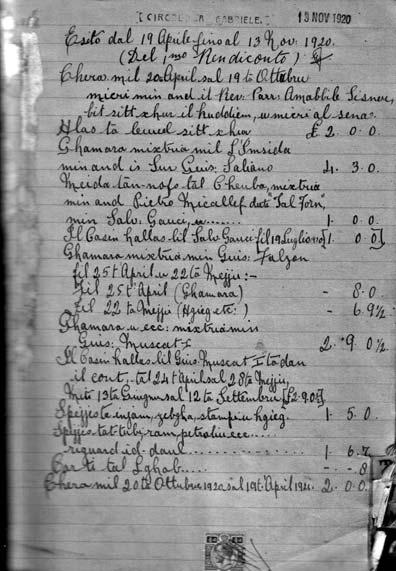 [CIRCOLO S. GABRIELE.] 13 NOV 1920
Esito dal 19 Aprile fino al 13 Nov. 1920.
(Del 1mo Rendiconto)
Chera mil 20 April sal 19 ta Ottubru
micri min and il Rev. Parr: Amabbile Sisner,
bit sitt xhur il huddiem, u micri al sena.
Hlas ta leuuel sitt xhur £ 2. 0. 0.
Ghamara mixtria mil L'Imsida
min and is Sur Giuś: Saliano 4. 3. 0.
Meida tan-nofs tal Cheuba, mixtria
min and Pietro Micallef dett "Tal Forn",
min Salv. Gauci, u 1. 0. 0
Il Casin hallas lil Salv. Gauci fil 19 Luglio [1. 0. 0]
Ghamara mixtria min Giuś: Falzon
fil 25 t'April u 22 ta Mejju:-
Fil 25 t'April (Ghamara) - 8. 0.
Fil 22 ta Mejju (Hgieg etc:) - 6. 9½
Ghamara u ecc: mixtria min
Giuś: Muscat I 2. 9. 0½
Il Casin hallas lil Giuś: Muscat I ta dan
il cont, tal 24 t'April sal 28 ta Mejju,
Mit 13 ta Giugnu sal 12 ta Settembru [£2.9.0½]
Spejjes ta injam, zebgha, stampi u hgieg 1. 5. 0.
Spejjes tat-tubi, ram, petroliu ecc
riguard id-daul 1. 6. 7.
Carti tal Lghab - - 8
Chera mil 20 ta Ottubru 1920 sal 19 t'April 1921. 2. 0. 0.